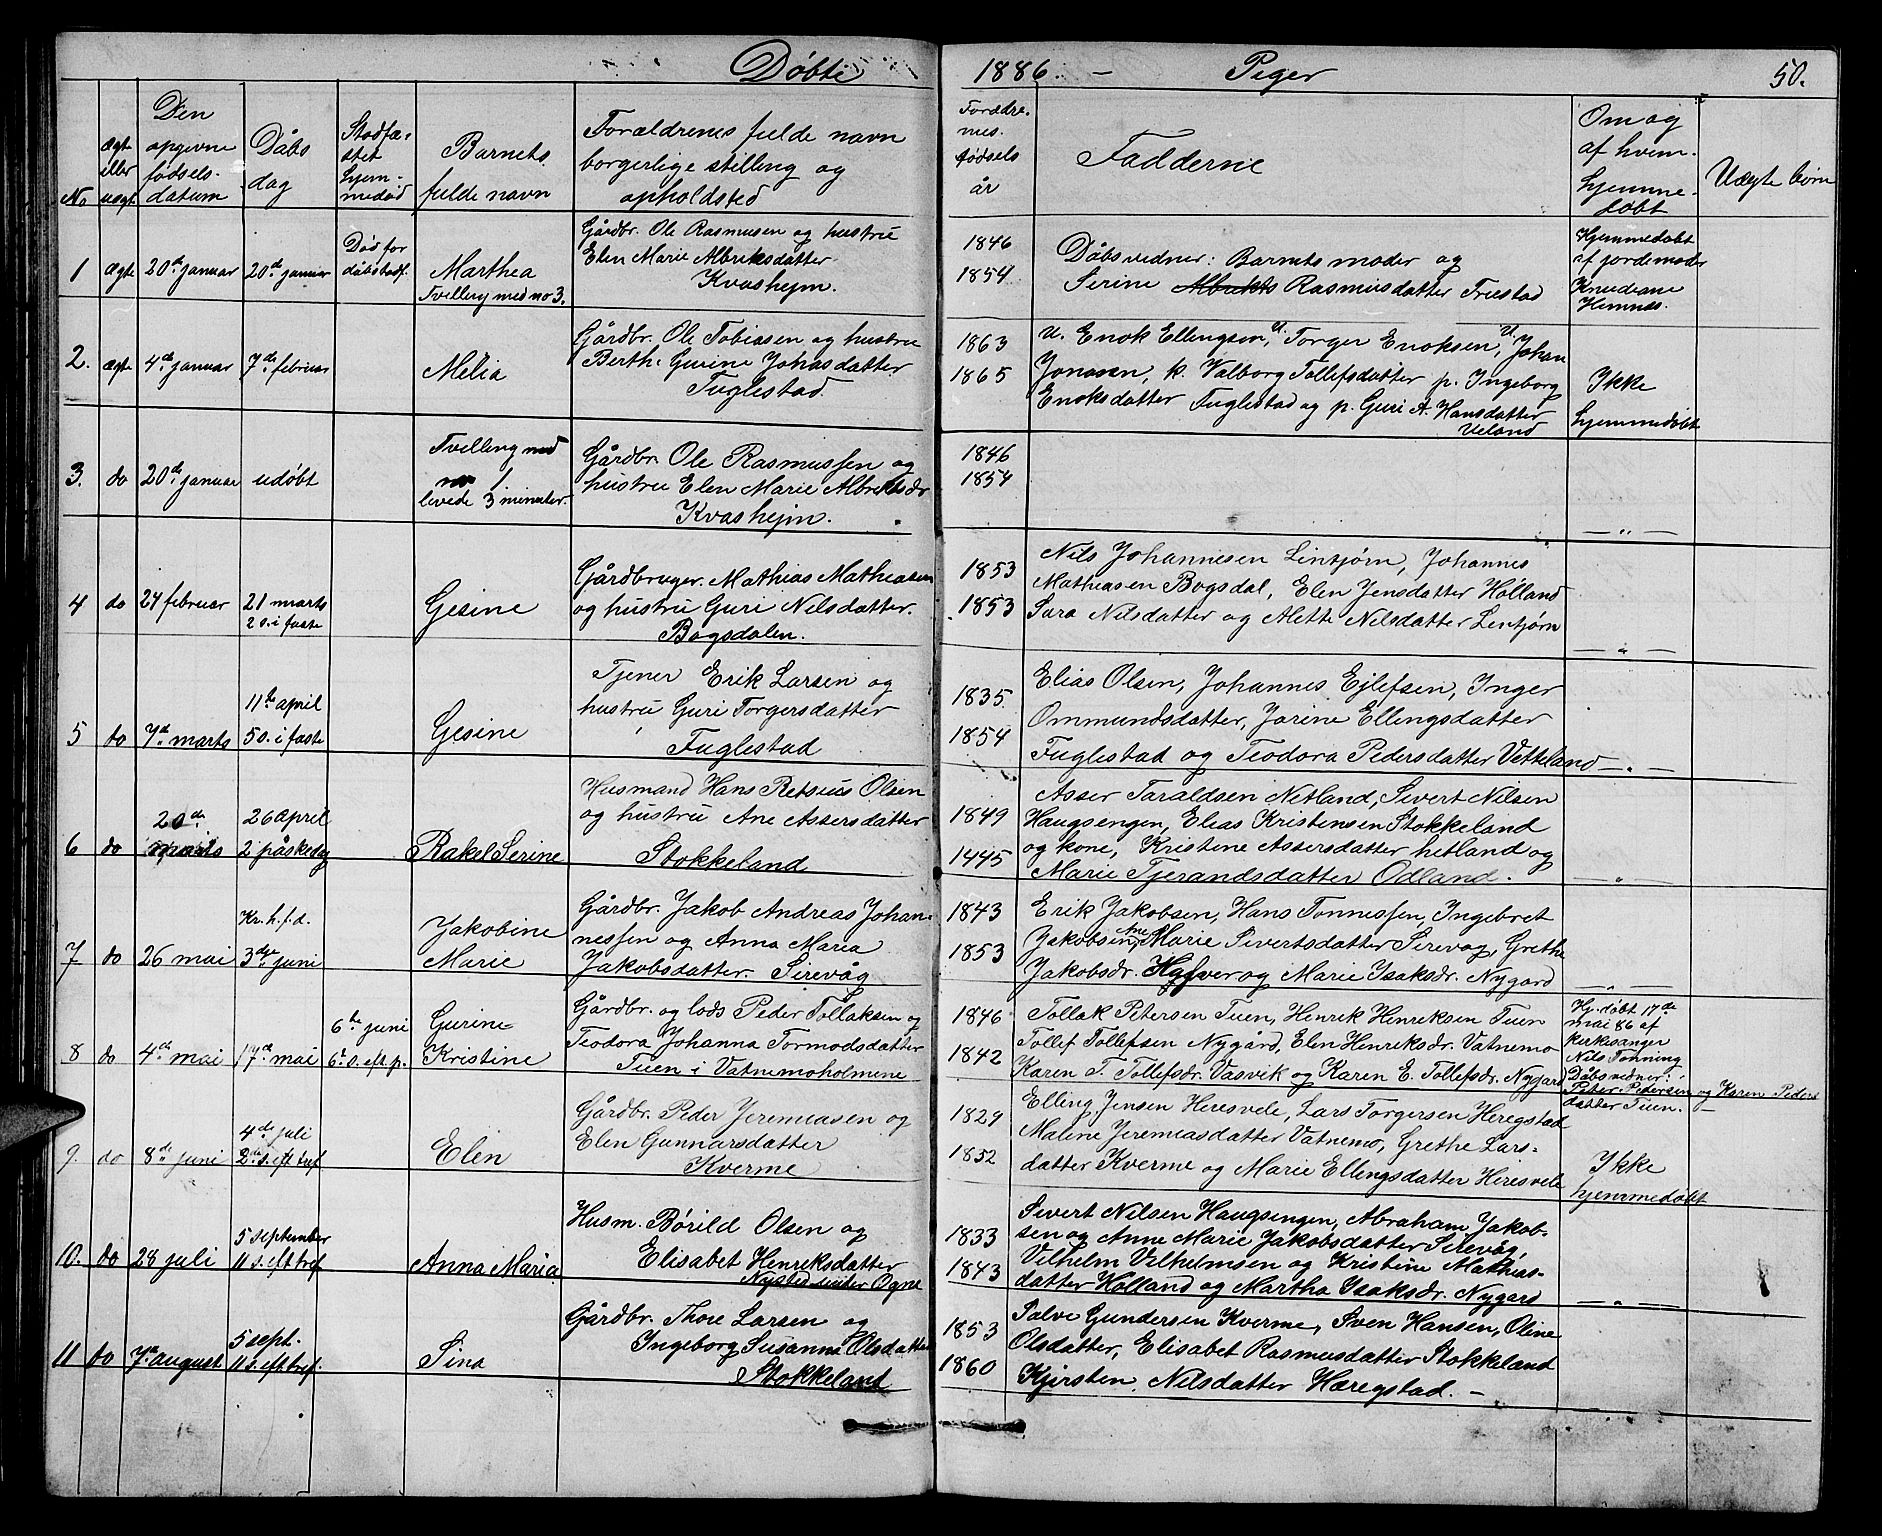 Døbte
1886 - Piger 50.
No
ægt eller uægt
Den opgivne fødsels-datum
Dåbs dag
Stadfæ-stet hjem-medåb
Barnets fulde navn
Forældrenes fulde navn borgerlige stilling og opholdsted
Forældre-nes fødsels år
Fadderne
Om og af hvem hjemme-døbt
Uægte børn
1 ægte 20de januar 20de januar
Død før dåbstadf.
Marthea
Tvilling med no 3.
Gårdbr. Ole Rasmusen og hustru
Elen Marie Albriksdatter
Kvashejm.
1846
1854
Dåbsvidner: Barnets moder og
Serine Rasmusdatter Tuestad
Hjemmedøbt
af jordemoder
Knudiane
Hemnes.
2. ægte 4de januar 7de februar
Melia
Gårdbr. Ole Tobiasen og hustru
Berthe Gurine Johasdatter
Fuglestad.
1863
1865
u. Enok Ellingsen, u. Torger Enoksen, u. Johan
Jonasen, k. Valborg Tollefsdatter p. Ingeborg
Enoksdatter Fuglestad og p. Guri A. Hansdatter
Ueland
Ikke
hjemmedøbt
3. do 20de januar udøbt
Tvilling med
no 1
levede 3 minuter.
Gårdbr. Ole Rasmussen og
hustru Elen Marie Albriktsdr
Kvashejm.
1846
1854
— „ —
4 do 24 februar 21 marts
2 s. i faste
Gesine
Gårdbruger. Mathias Mathiasen
og hustru Guri Nilsdatter.
Bogsdalen.
1853
1853
Nils Johannesen Lintjørn, Johannes
Mathiasen Bogsdal, Elen Jensdatter Hølland
Sara Nilsdatter og Alette Nilsdatter Lintjørn
— „ —
5 do 7de marts 11te april
5 s. i faste
Gesine
Tjener Erik Larsen og
hustru Guri Torgersdatter
Fuglestad
1835.
1854
Elias Olsen, Johannes Ejlefsen, Inger
Ommundsdatter, Jorine Ellingsdatter
Fuglestad og Teodora Pedersdatter Vetteland
— „ —
6 do 20de marts 26 april
2 påskedg
Rakel Serine
Husmand Hans Retsius Olsen
og hustru Ane Assersdatter
Stokkeland
1849
1445
Asser Taraldsen Netland, Sivert Nilsen
Haugsengen, Elias Kristensen Stokkeland
og kone, Kristine Assersdatter hetland og
Marie Tjerandsdatter Odland.
— „ —
7 do 26 mai Kr. h. f. d.
3die juni
Jakobine
Marie
Gårdbr. Jakob Andreas Johan-
nessen og Anna Maria
Jakobsdatter. Sirevåg
1843
1853
Erik Jakobsen, Hans Tønnessen, Ingebret
Jakobsen, Ane Marie Sivertsdatter Sirevåg, Grethe
Jakobsdr. og Marie Isaksdr. Nygård
— „ —
8 do 4de mai 17de mai
6te juni
6 s. eft. p.
Gurine
Kristine
Gårdbr. og lods Peder Tollaksen og
Teodora Johanna Tormodsdatter
Tuen i Vatnemoholmene
1846
1842
Tollak Petersen Tuen, Henrik Henriksen Tuen
Tollef Tollefsen Nygård, Elen Henriksdr. Vatnemo
Karen T. Tollefsdr. Vasvik og Karen E. Tollefsdr. Nygård
Hj. døbt 17de
mai 86 af
kirkesanger
Nils Tønning
Dåbsvidner:
Peter Pedersen og Karen Peders
datter Tuen. —
9. do 8de juni 4de juli
2de s. eft tref
Elen
Gårdbr. Peder Jeremiasen og
Elen Gunnarsdatter
Kverme
1829
1852
Elling Jensen Heresvele, Lars Torgersen Heregstad
Malene Jeremiasdatter Vatnemo, Grethe Lars-
datter Kverme og Marie Ellingsdatter Hiresvele
Ikke
hjemmedøbt
10. do 28 juli 5 september
11 s. eft tref
Anna Maria
Husm. Børild Olsen og
Elisabet Henriksdatter
Nysted under Ogne
1833
1843
Sivert Nilsen Haugsengen, Abraham Jakob-
sen og Anne Marie Jakobsdatter Sirevåg,
Vilhelm Vilhelmsen og Kristine Mathias-
datter Holland og Martha Isaksdr. Nygård
— „ —
11 do 7de august 5 sept.
11 s. eft tref.
Sina
Gårdbr. Thore Larsen og
Ingeborg Susanna Olsdatter
Stokkeland
1853
1860
Salve Gundersen Kverme, Sven Hansen, Oline
Olsdatter, Elisabet Rasmusdatter Stokkland
Kjirsten Nilsdatter Hæregstad. —